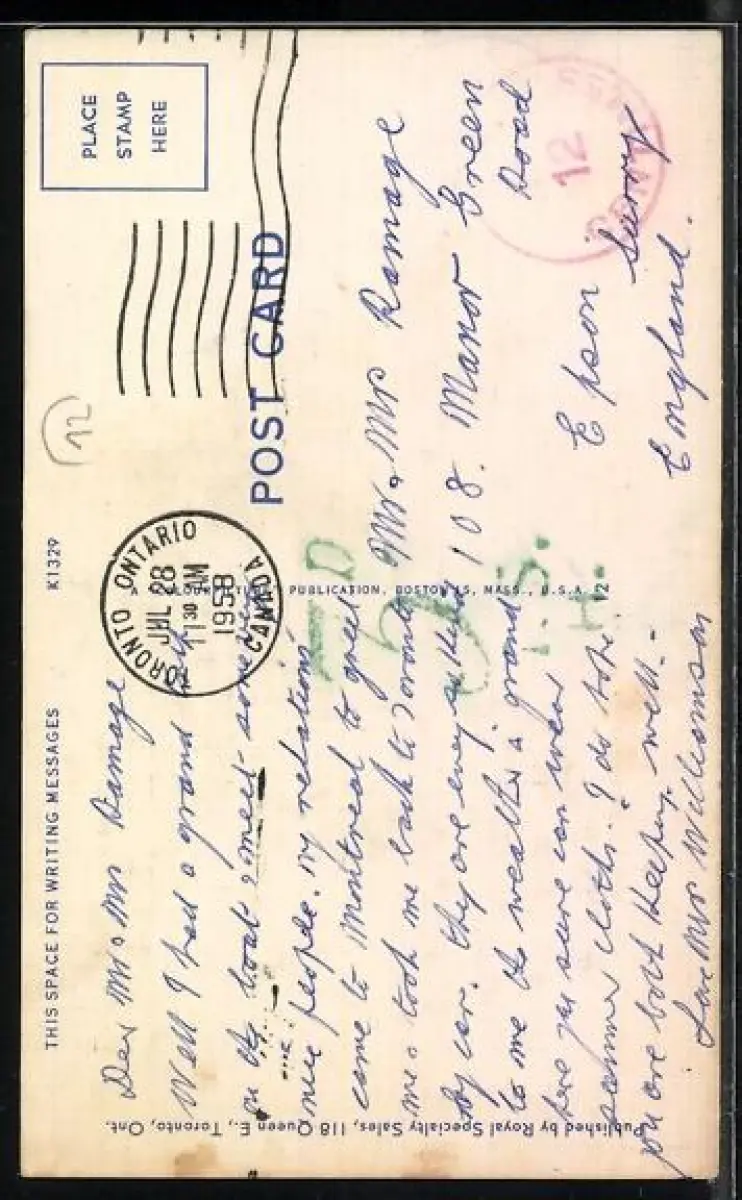 THIS SPACE FOR WRITING MESSAGES
K1329
PLACE
STAMP
HERE
12
TORONTO ONTARIO
JUL 28
11 30 AM
1958
CANADA
POST CARD
Dear Mr & Mrs Ramage
Well I had a grand
on the boat & meet some
nice people. my relations
came to Montreal to greet
me & took me back to Toronto
by car. they are every so kind
to me the weather is grand
here you sure can wear
summer cloths. I do hope
you are both keeping well.
Love Mrs Williamson
PUBLICATION, BOSTON 15, MASS., U.S.A.
Mr. Mrs Ramage
108. Manor Green
Road
Epson
Surrey
England.
12
D
5
T.S.
H.
Published by Royal Specialty Sales, 118 Queen E., Toronto, Ont.